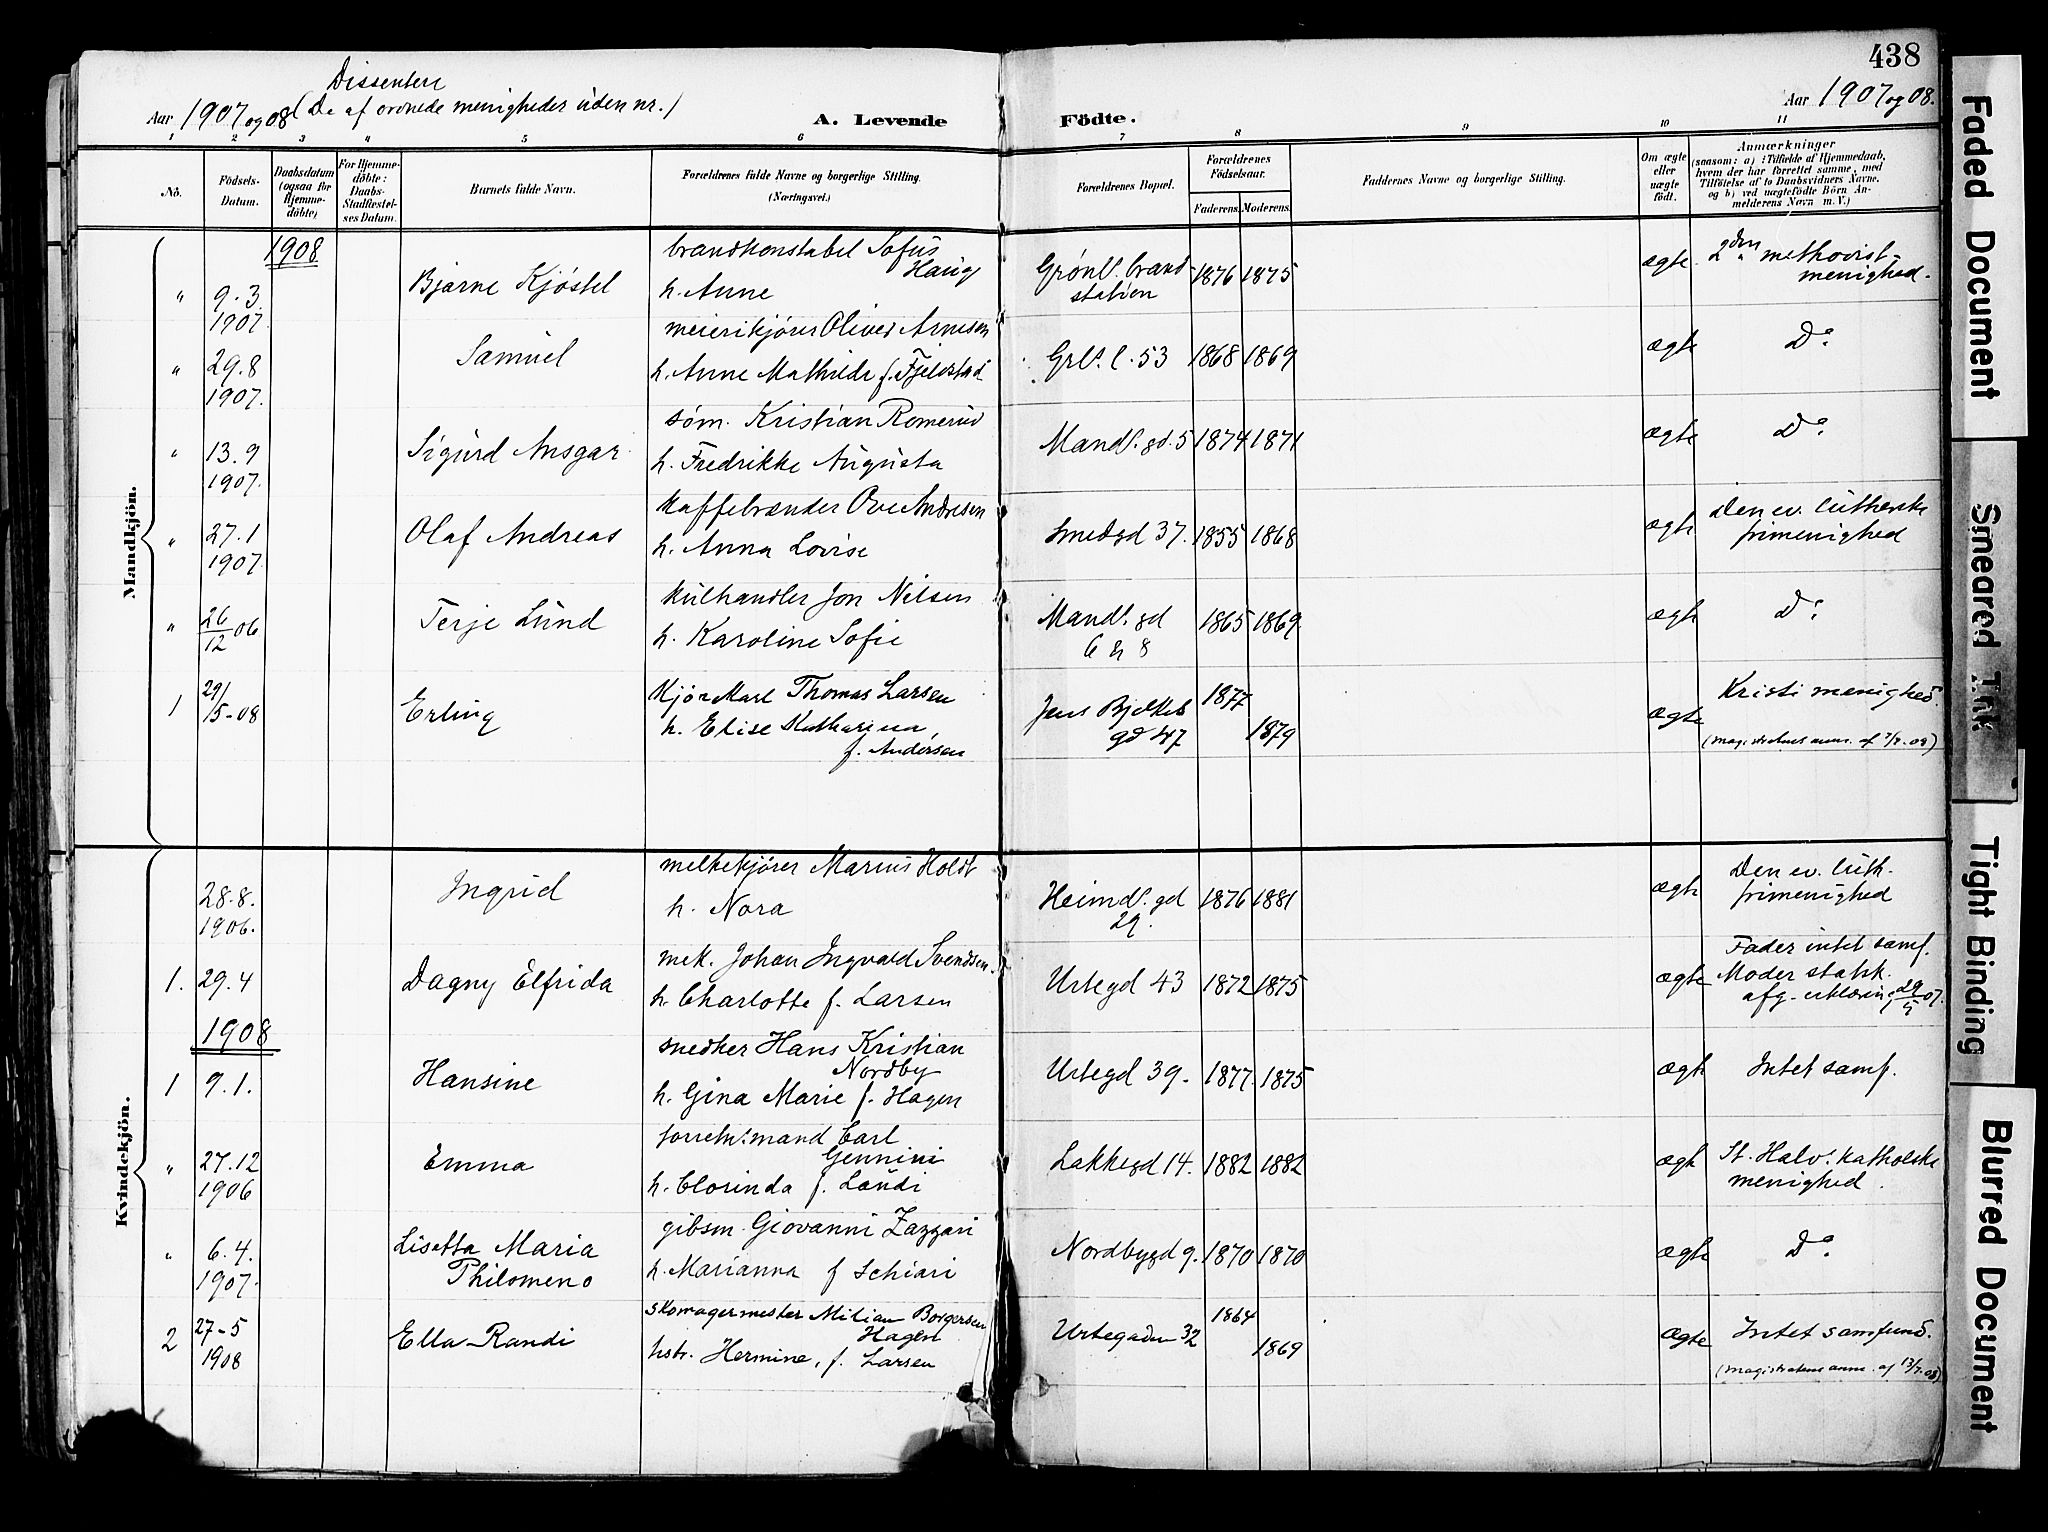 438
Dissentere
Aar 1907 og 08 (De af ordnede menigheder uden nr.)
A. Levende Födte.
Aar 1907 og 08.
1 2 3 4 5 6 7 8 9 10 11
No.
Födsels-Datum.
Daabsdatum (ogsaa for Hjemme-döbte)
For Hjemme-döbte: Daabs-Stadfæstel-ses Datum.
Barnets fulde Navn.
Forældrenes fulde Navne og borgerlige Stilling. (Næringsvei.)
Forældrenes Bopæl.
Forældrenes Födselsaar.
Faderens. Moderens.
Faddernes Navne og borgerlige Stilling.
Om ægte eller uægte födt.
Anmærkninger
(saasom: a) i Tilfælde af Hjemmedaab, hvem der har forrettet samme, med Tilföielse af to Daabsvidners Navne, og b) ved uægtefödte Börn An-melderens Navn m. V.)
Mandkjön.
1908
" 9.3. 1907. Bjarne Kjöstel brandkonstabel Sofus Haug h. Anne Grønl. brand-station 1876 1875 ægte 2den methodist-menighed.
" 29.8 1907. Samuel meierikjører Oliver Arnesen h. Anne Mathilde f. Fjeldstad Grl. l. 53 1868 1869 ægte Do.
" 13.9 1907. Sigurd Ansgar søm. Kristian Romerud h. Fredrikke Augusta Mandl. gd. 5 1874 1871 ægte Do.
" 27.1 1907. Olaf Andreas kaffebrænder Ove Andresen h. Anna Lovise Smedgd 37. 1855 1868 ægte Den ev. lutherske frimenighed
" 26/12 06 Terje Lund kulhandler Jon Nilsen h. Karoline Sofie Mandl. gd 6 & 8 1865 1869 ægte Do.
1 29/5-08 Erling Thomas Larsen h. Elise Katharina, f. Andersen Jens Bjelkes gd 47 1877 1879 ægte Kristi menighed.
(magistratens anm. af 7/7-08)
Kvindekjön.
28.8. 1906. Ingrid melkekjører Marius Holdt h. Nora Heimd. gd 29. 1876 1881 ægte Den ev. luth. frimenighed
1. 29.4 Dagny Elfrida mek. Johan Ingvald Svendsen. h. Charlotte f. Larsen Urtegd 43 1872 1875 ægte Fader intet samf. Moder statsk. afg. erklæring 29/5 07.
1908
1 9.1. Hansine snedker Hans Kristian Nordby h. Gina Marie f. Hagen Urtegd 39. 1877. 1875 ægte Intet samf.
" 27.12 1906 Emma forretn.mand Carl Gennini h. Clorinda f. Landi Lakkegd 14. 1882 1882 ægte St. Halv. katholske menighed.
" 6.4. 1907. Lisetta Maria Philomeno gibsm. Giovanni Zazzari h. Marianna f Schiari Nordbygd 9. 1870 1870 ægte Do.
2 27-5 1908 Ella Randi skomagermester Milian Borgersen Hagen hstr. Hermine, f. Larsen Urtegaden 32 1864 1869 ægte Intet samfund.
(magistratens anm. af 13/7.08)
Faded Document
Smeared Ink
Tight Binding
Blurred Document